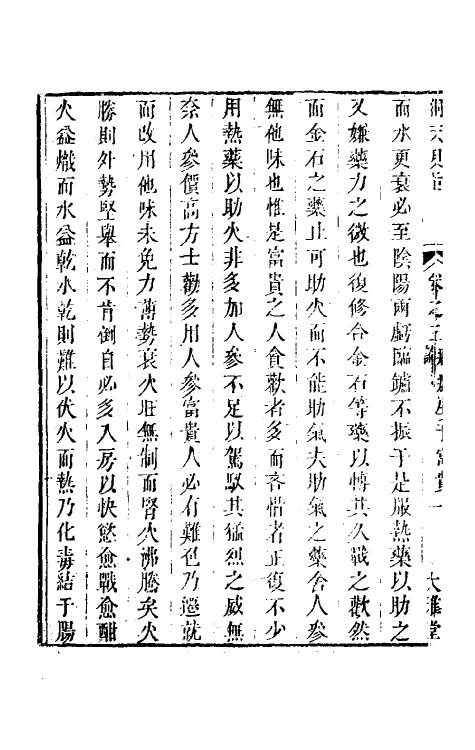 洞天奧旨 卷之五 富貴 一 大雅堂
而水更衰必至陰陽兩虧臨鑪不振于是服熱藥以助之
又嫌藥力之微也復修合金石等藥以博其久戰之歡然
而金石之藥止可助火而不能助氣夫助氣之藥舍人參
無他味也惟是富貴之人貪歡者多而吝惜者正復不少
用熱藥以助火非多加人參不足以駕馭其猛烈之威無
奈人參價高方士勸多用人參富貴人必有難色乃遷就
而改用他味未免力薄勢衰火旺無制而腎火沸騰矣火
勝則外勢堅舉而不肯倒自必多入房以快慾愈戰愈酣
火益熾而水益乾水乾則難以伏火而熱乃化毒結于腸